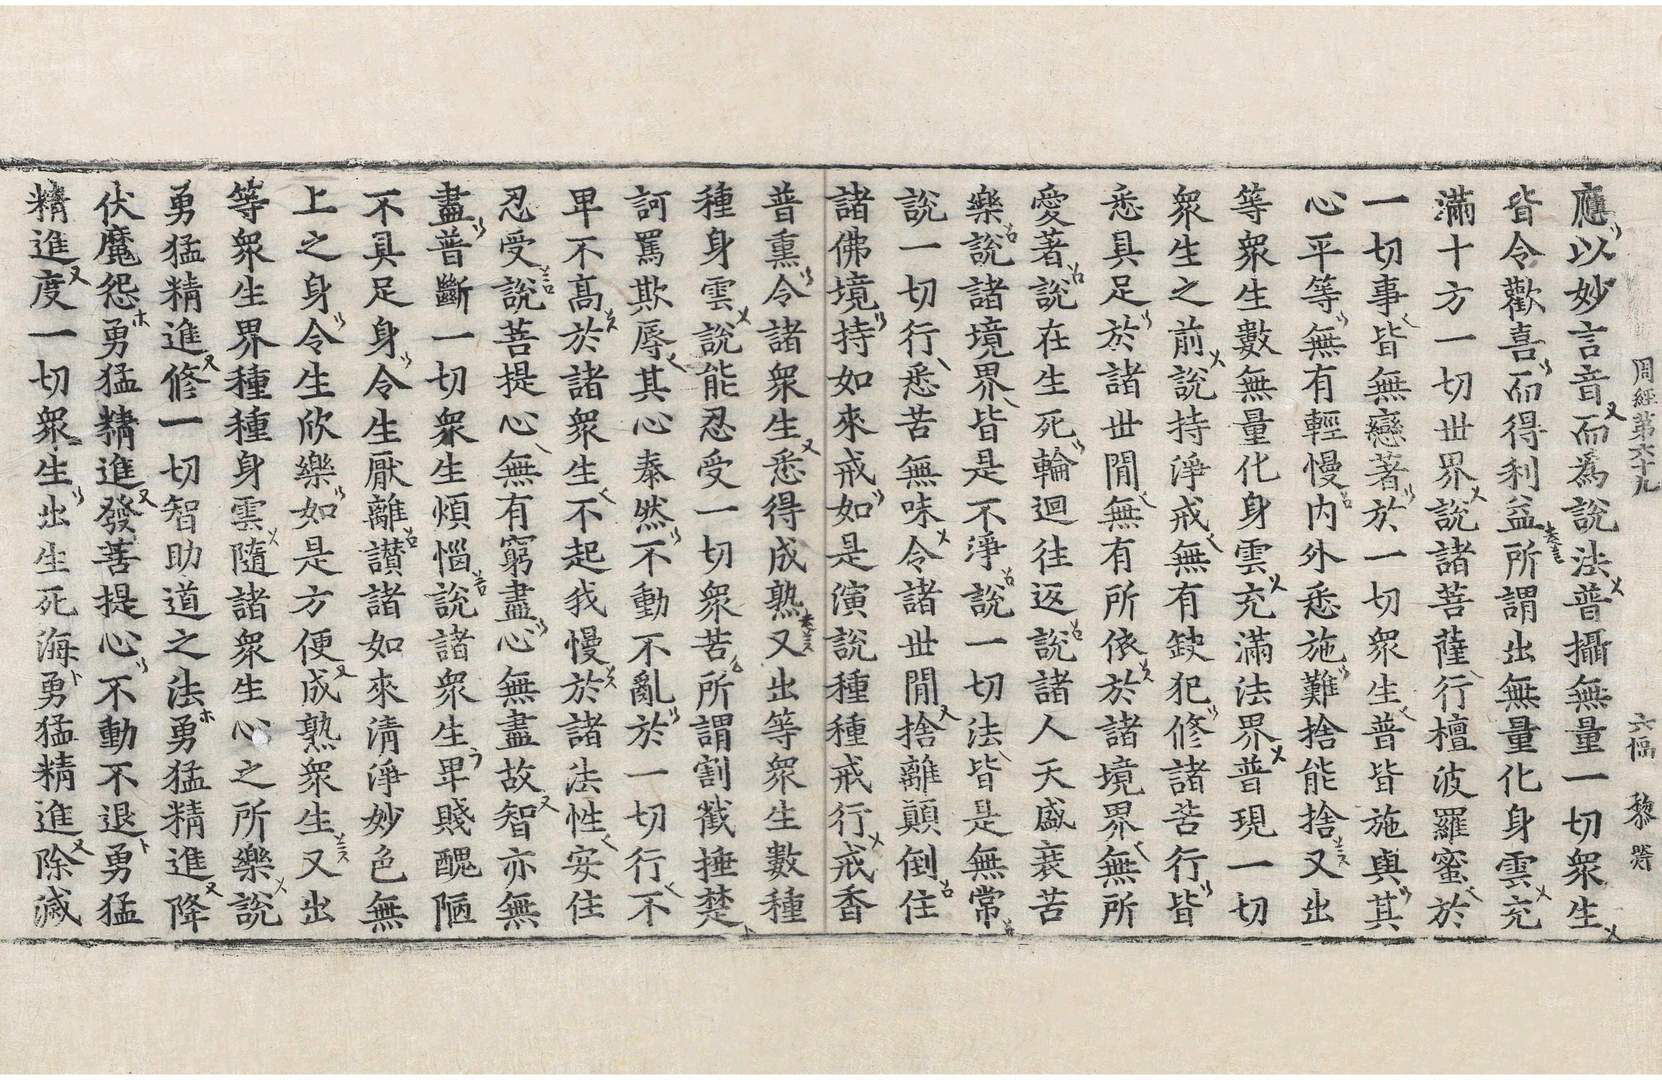 周經第六十九 六幅
應以妙言音而為說法普攝無量一切衆生
皆令歡喜而得利益所謂出無量化身雲充
滿十方一切世界說諸菩薩行檀波羅蜜於
一切事皆無戀著於一切衆生普皆施與其
心平等無有輕慢內外悉施難捨能捨又出
等衆生數無量化身雲充滿法界普現一切
衆生之前說持淨戒無有缺犯修諸苦行皆
悉具足於諸世閒無有所依於諸境界無所
愛著說在生死輪迴往返說諸人天盛衰苦
樂說諸境界皆是不淨說一切法皆是無常
說一切行悉苦無味令諸世閒捨離顚倒住
諸佛境持如來戒如是演說種種戒行戒香
普熏令諸衆生悉得成熟又出等衆生數種
種身雲說能忍受一切衆苦所謂割截捶楚
訶罵欺辱其心泰然不動不亂於一切行不
卑不高於諸衆生不起我慢於諸法性安住
忍受說菩提心無有窮盡心無盡故智亦無
盡普斷一切衆生煩惱說諸衆生卑賤醜陋
不具足身令生厭離讃諸如來清淨妙色無
上之身令生欣樂如是方便成熟衆生又出
等衆生界種種身雲隨諸衆生心之所樂說
勇猛精進修一切智助道之法勇猛精進降
伏魔怨勇猛精進發菩提心不動不退勇猛
精進度一切衆生出生死海勇猛精進除滅